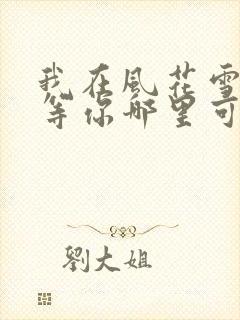 我在風花雪
等你哪里可
劉大姐